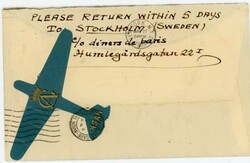 PLEASE RETURN WITHIN 5 DAYS
To STOCKHOLM (SWEDEN)
c/o diners de paris
Humlegårdsgatan 22 I